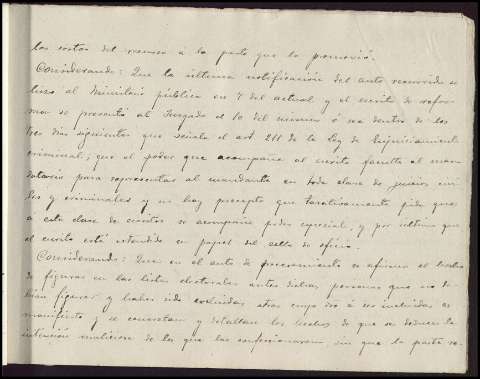 las costas del recurso á la parte que lo promovió.
Considerando: Que la última notificación del auto recurrido se
hizo al Ministerio público en 7 del actual y el escrito de refor-
ma se presentó al Juzgado el 10 del mismo ó sea dentro de los
tres días siguientes que señala el art. 211 de la ley de Enjuiciamiento
criminal; que el poder que acompaña al escrito faculta al man-
datario para representar al mandante en toda clase de juicios civi-
les y criminales y no hay precepto que taxativamente pida que
á esta clase de escritos se acompañe poder especial, y por último que
el escrito está extendido en papel del sello de oficio.
Considerando: Que en el auto de procesamiento se afirma el hecho
de figurar en las listas electorales personas que no de-
bían figurar y haber sido excluidas otras á ser incluidas es
manifiesto y se concretan y detallan los hechos de que se deduce la
intención maliciosa de los que las confeccionaron, sin que la parte re-